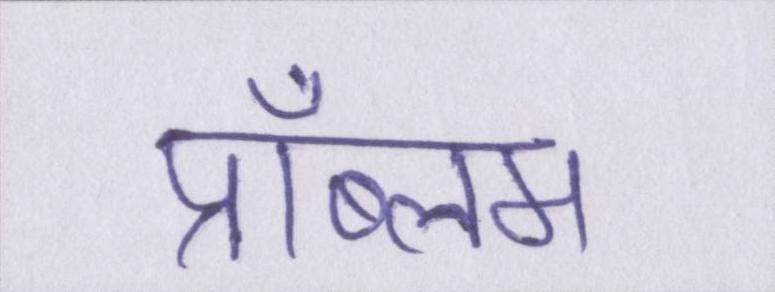 प्राँब्लम